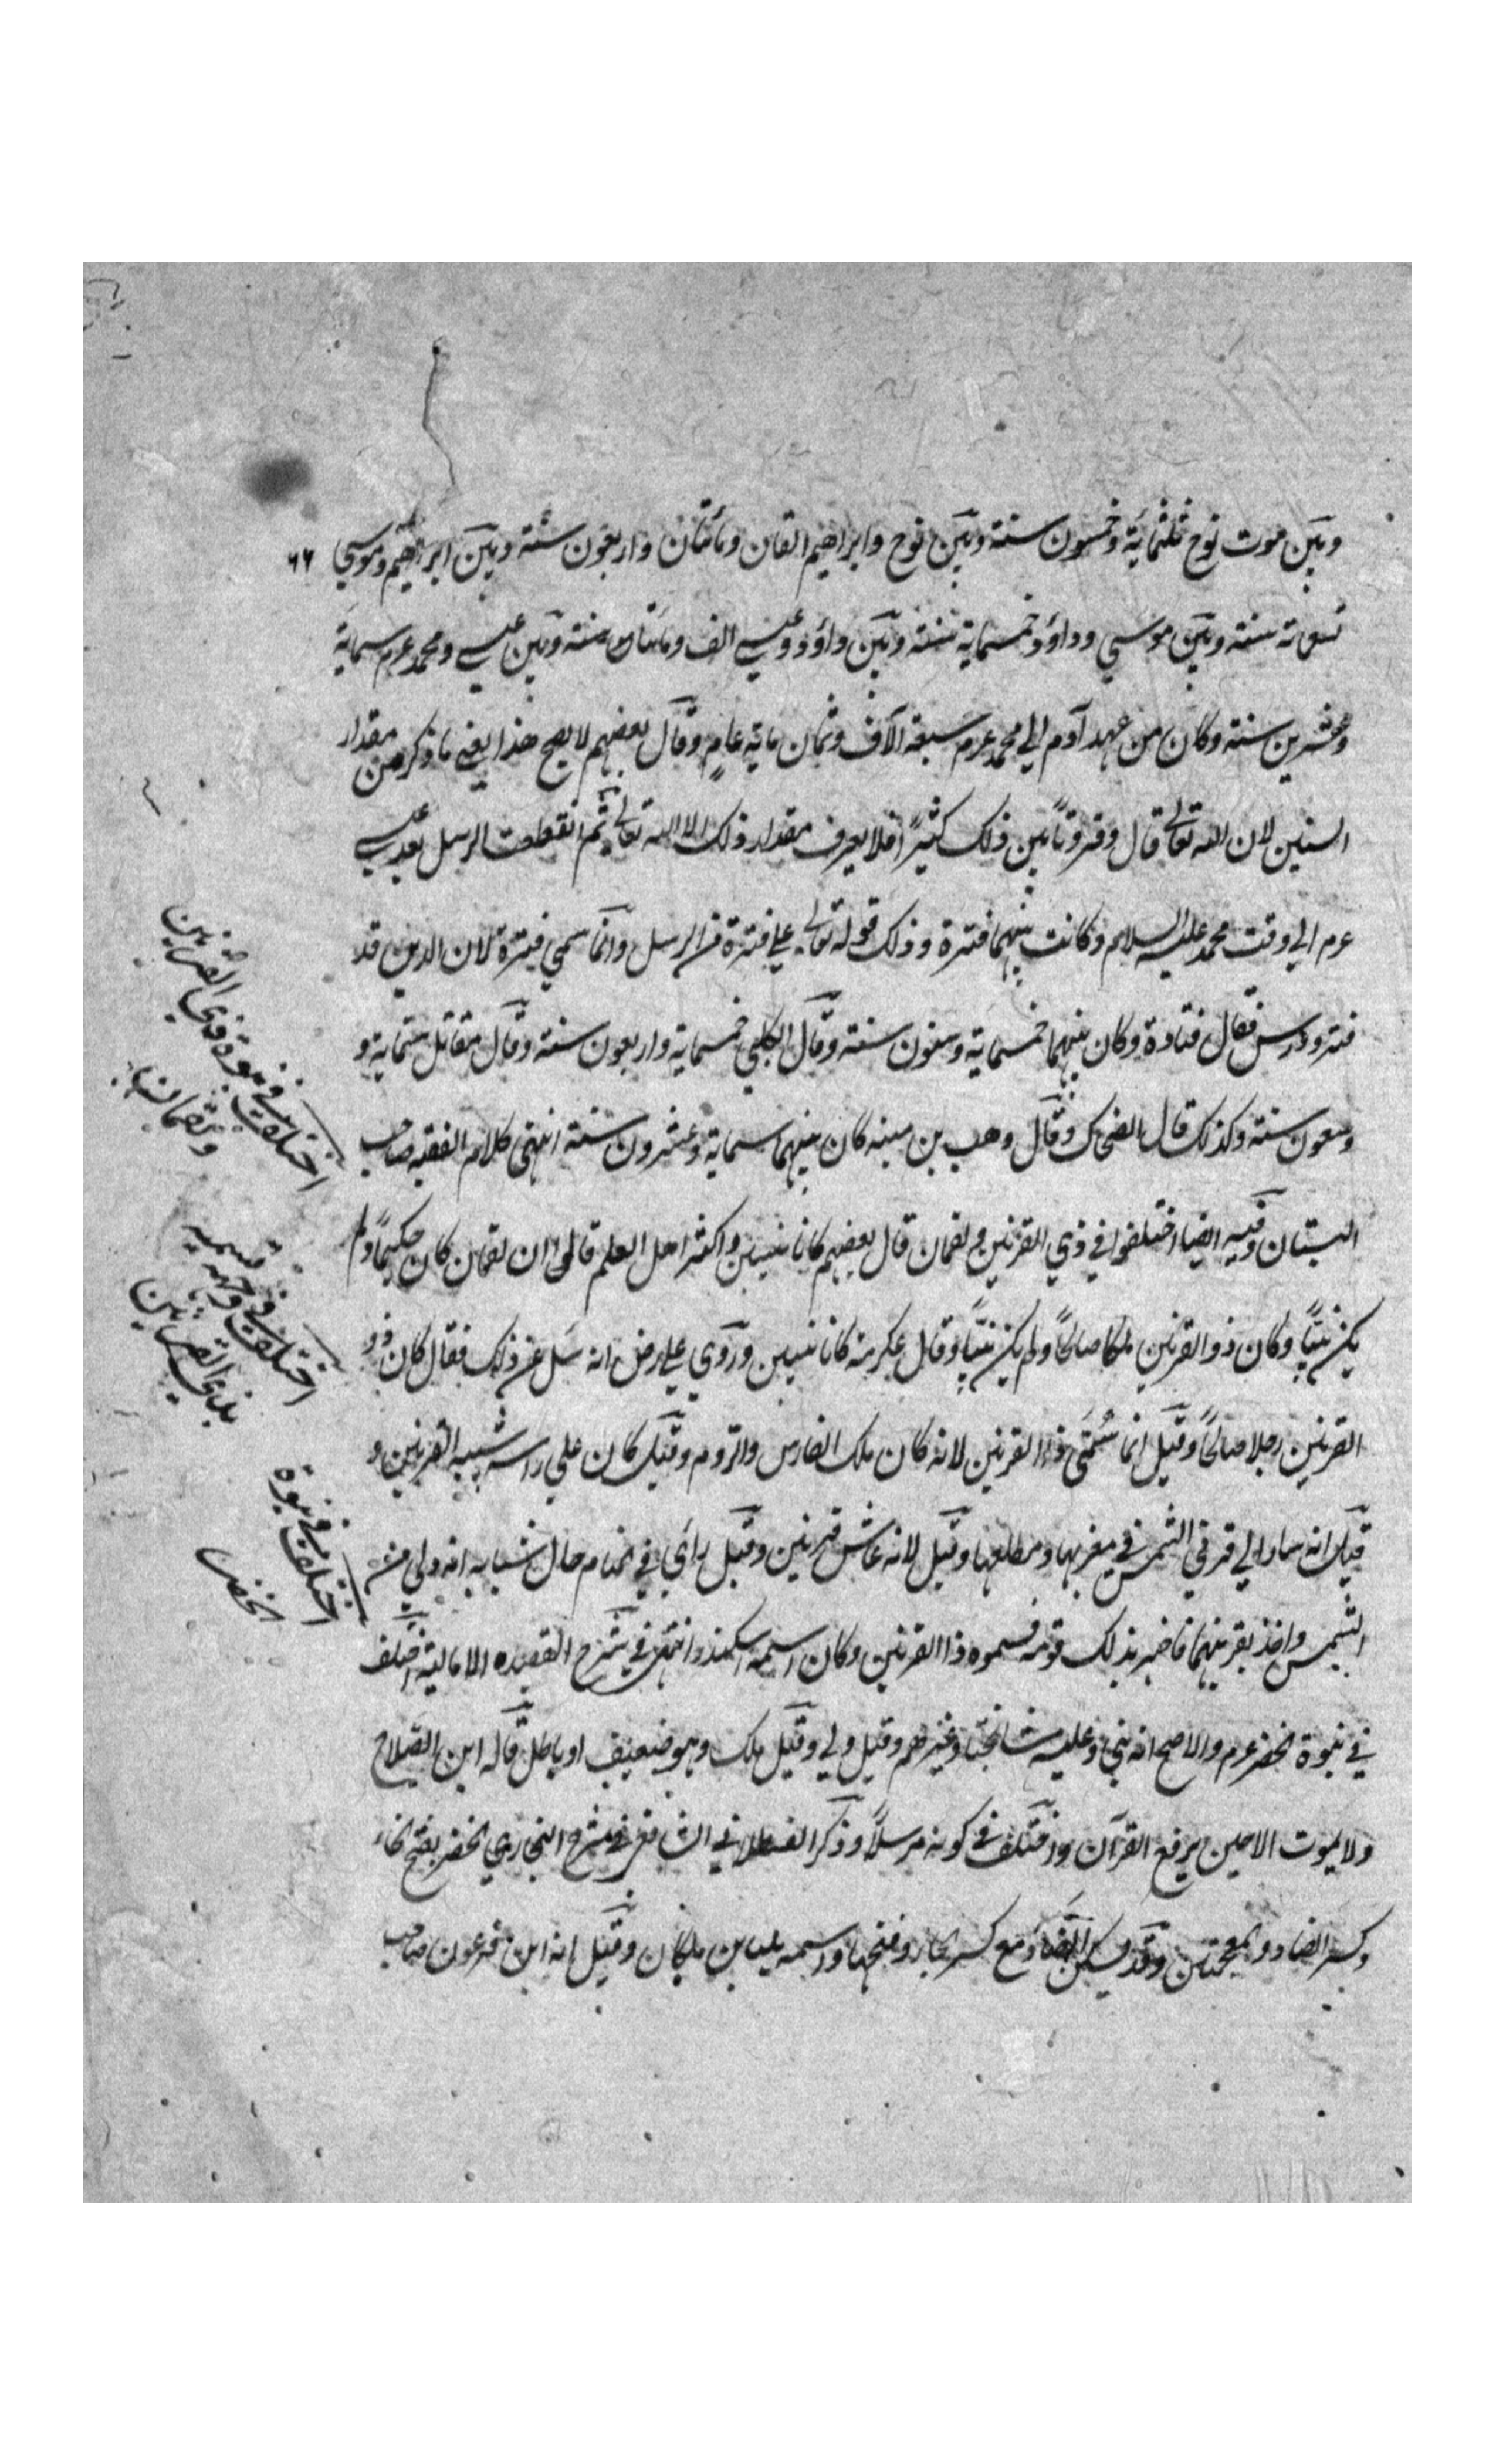 وبين موت نوح ثلثمائة وخمسون سنة وبين نوح وابراهيم الفان ومائتان واربعون سنة وبين ابراهيم وموسي ٦٦
سنة وبين موسي وداؤد خمسماية سنة وبين داؤد وعيسے الف ومائتان سنة وبين عيسے ومحمد عرم ستماية
وعشرين سنة وكان من عهد آدم الي محمد عرم سبعة آلاف وثمان ماية عام وقال بعضهم لا يصح هذا يعني ما ذكر من مقدار
السنين لان الله تعالى قال وقرونًا بين ذلك كثيرًا فلا يعرف مقدار ذلك الا الله تعالى ثم انقطعت الرسل بعد عيسے
عرم الي وقت محمد عليه السلام وكانت بينهما فترة وذلك قوله تعالى علي فترة من الرسل وانما سمي فترة لان الدين قد
فتر ودرس فقال قتادة وكان بينهما خمسماية وستون سنة وقال الكلبي خمسماية واربعون سنة وقال مقاتل ستماية و
سنة وكذلك قال الضحاك وقال وهب بن منبه كان بينهما ستماية وعشرون سنة انتهى كلام الفقيه صاحب
البستان وفيه ايضا اختلفوا في ذي القرنين ولقمان قال بعضهم كانا نبيين واكثر اهل العلم قالوا ان لقمان كان حكيمًا ولم
يكن نبيًا وكان ذو القرنين ملكا صالحًا ولم يكن نبيًا وقال عكرمة كانا نبيين وروي علي رض انه سئل عن ذلك فقال كان ذو
القرنين رجلا صالحًا وقيل انما سُمّي ذا القرنين لانه كان ملك الفارس والروم وقيل كان علي راسه شبيه القرنين و
قيل انه سار الي قرني الشمس في مغربها ومطلعها وقيل لانه عاش قرنين وقيل رأي في المنام حال شبابه انه ولي من
الشمس واخذ بقرنيهما فاخبر بذلك قومه فسموه ذا القرنين وكان اسمه اسكندر انتهى في شرح القصيده الامالية اختلف
في نبوة الخضر عرم والاصح انه نبي وعليه مشايخنا وغيرهم وقيل ولي وقيل ملك وهو ضعيف او باطل قاله ابن الصلاح
ولا يموت الا حين يرفع القرآن واختلف في كونه مرسلاً وذكر القسطلاني الشافعي في شرح البخاري الخضر بفتح الخاء
وكسر الضاد المعجمتين وقد يسكن الضاد مع كسر الخاء وفتحها واسمه بليا بن ملكان وقيل انه ابن فرعون صاحب
اختلف في نبوة ذي القرنين
ولقمان
اختلف في وجه تسميه
بذي القرنين
اختلف في نبوة
الخضر